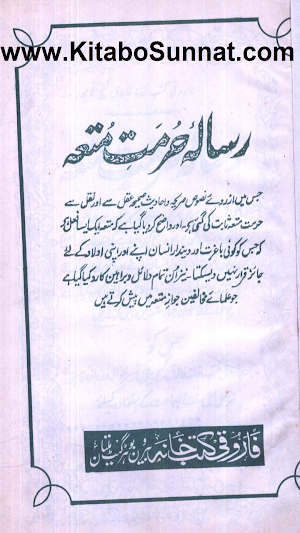 www.KitaboSunnat.com
رسالۂ حرمت متعہ
جس میں از روئے نصوص صریحہ واحادیث صحیحہ عقل سے اور نقل سے
حرمت متعہ ثابت کی گئی ہے اور واضح کر دیا گیا ہے کہ متعہ ایک ایسا فعل ہے
کہ جس کو کوئی باغیرت اور دیندار انسان اپنے اور اپنی اولاد کے لئے
جائز قرار نہیں دے سکتا نیز ان تمام دلائل وبراہین کا رد کیا گیا ہے
جو علمائے مخالفین جواز متعہ میں پیش کرتے ہیں
فاروقی کتب خانہ بیرون بوہڑ گیٹ ملتان